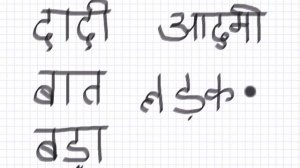 दादी आदमी
बात लड़क
बड़ा